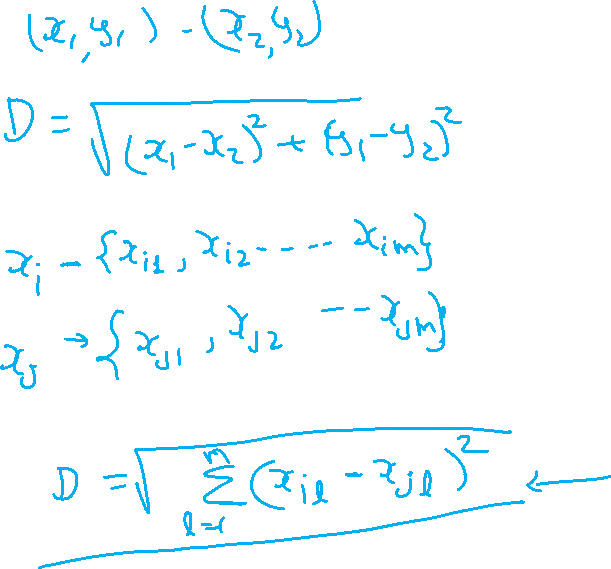 (x₁, y₁) - (x₂, y₂)
D = √((x₁ - x₂)² + (y₁ - y₂)²)
xᵢ - {xᵢ₁, xᵢ₂ ---- -- xᵢₘ}
xⱼ → {xⱼ₁, xⱼ₂ -- xⱼₘ}
D = √(∑_{l=1}^{m} (x_{il} - x_{jl})²) ←